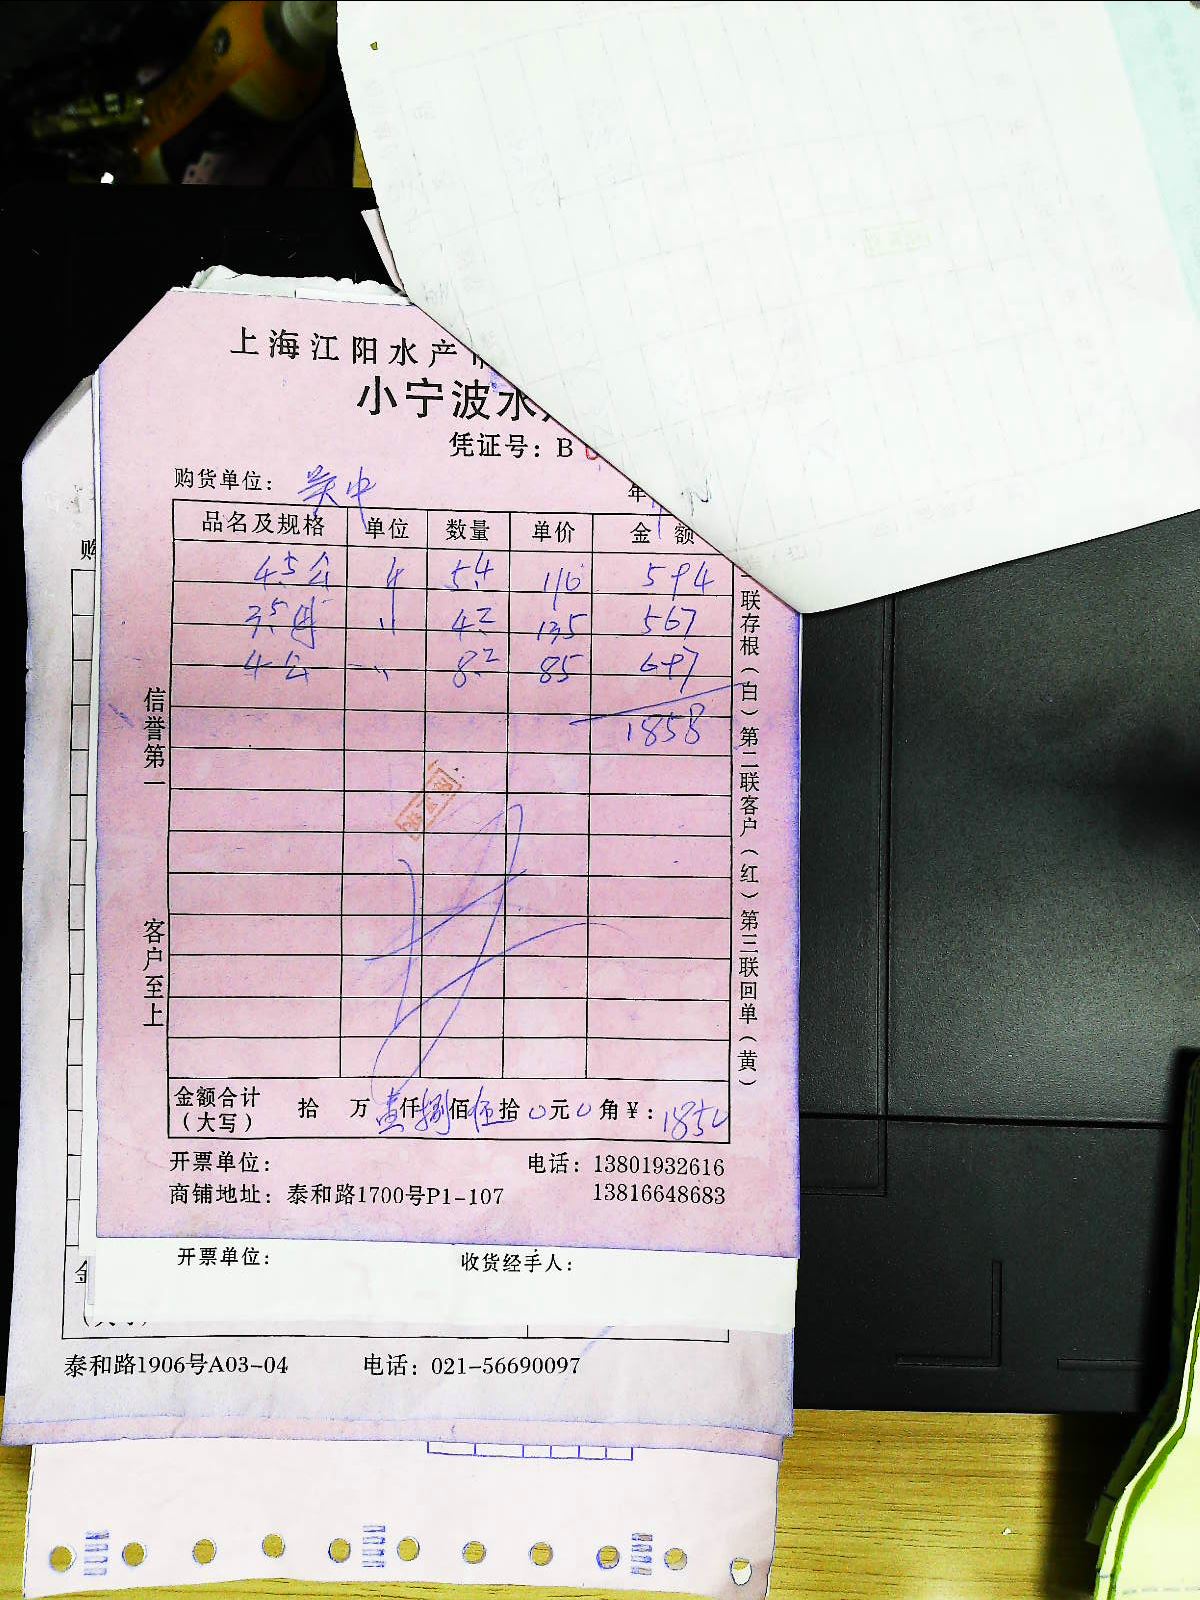 上海江阳水产
小宁波水
凭证号：B
购货单位：吴中
年
品名及规格 单位 数量 单价 金额
4.5公 5.4 110 594
3.5母 〃 4.2 135 567
4公 〃 8.2 85 697
1858
信誉第一
客户至上
联存根（白）第二联客户（红）第三联回单（黄）
金额合计（大写） 拾 万 壹仟捌佰伍拾0元0角¥：1850
开票单位： 电话：13801932616
商铺地址：泰和路1700号P1-107 13816648683
开票单位： 收货经手人：
泰和路1906号A03-04 电话：021-56690097
购